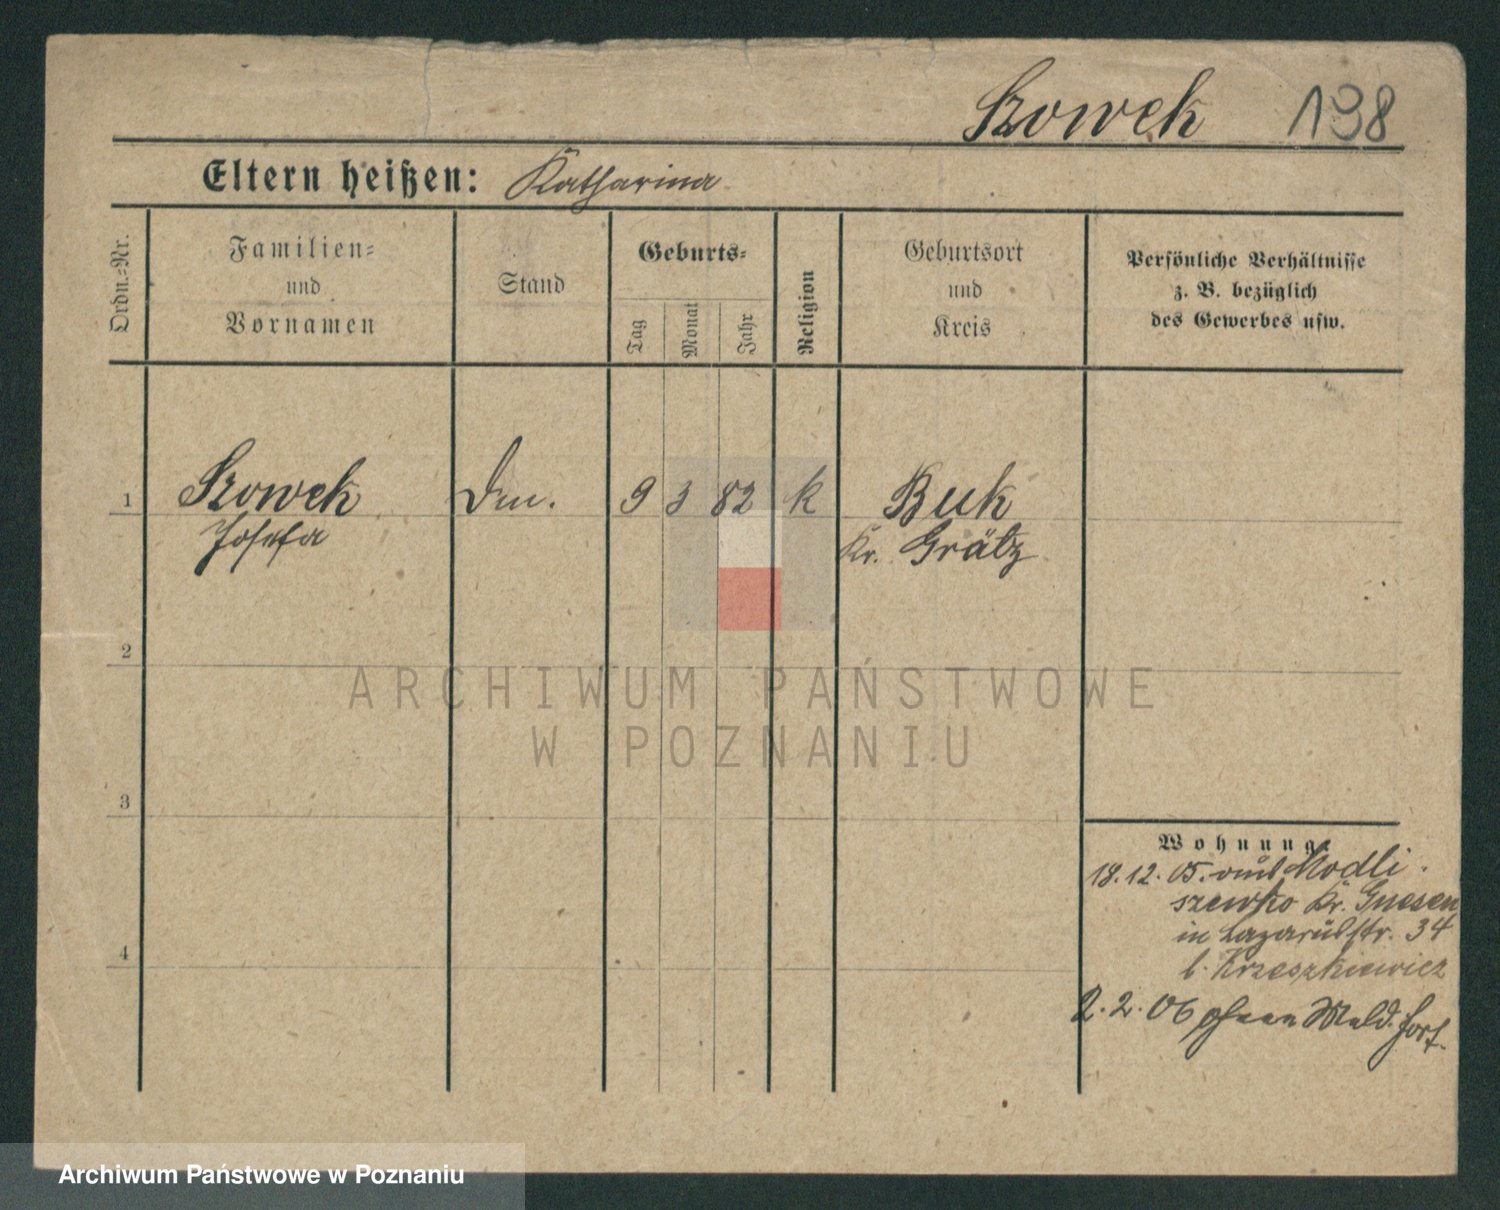 Szowek 138
Eltern heißen: Katharina
Ordn.=Nr.
Familien=
und
Vornamen
Stand
Geburts=
Tag
Monat
Jahr
Religion
Geburtsort
und
Kreis
Persönliche Verhältnisse
z. B. bezüglich
des Gewerbes usw.
1 Szowek 9 3 82 k Buk
Josefa Kr. Grätz
2
3
4
Wohnung
18.12.05. aus Modli
szewko Kr. Gnesen
in Lazarusstr. 34
b. Krzeszkiewicz
2.2.06 ohne Meld. fort.
ARCHIWUM PAŃSTWOWE
W POZNANIU
Archiwum Państwowe w Poznaniu